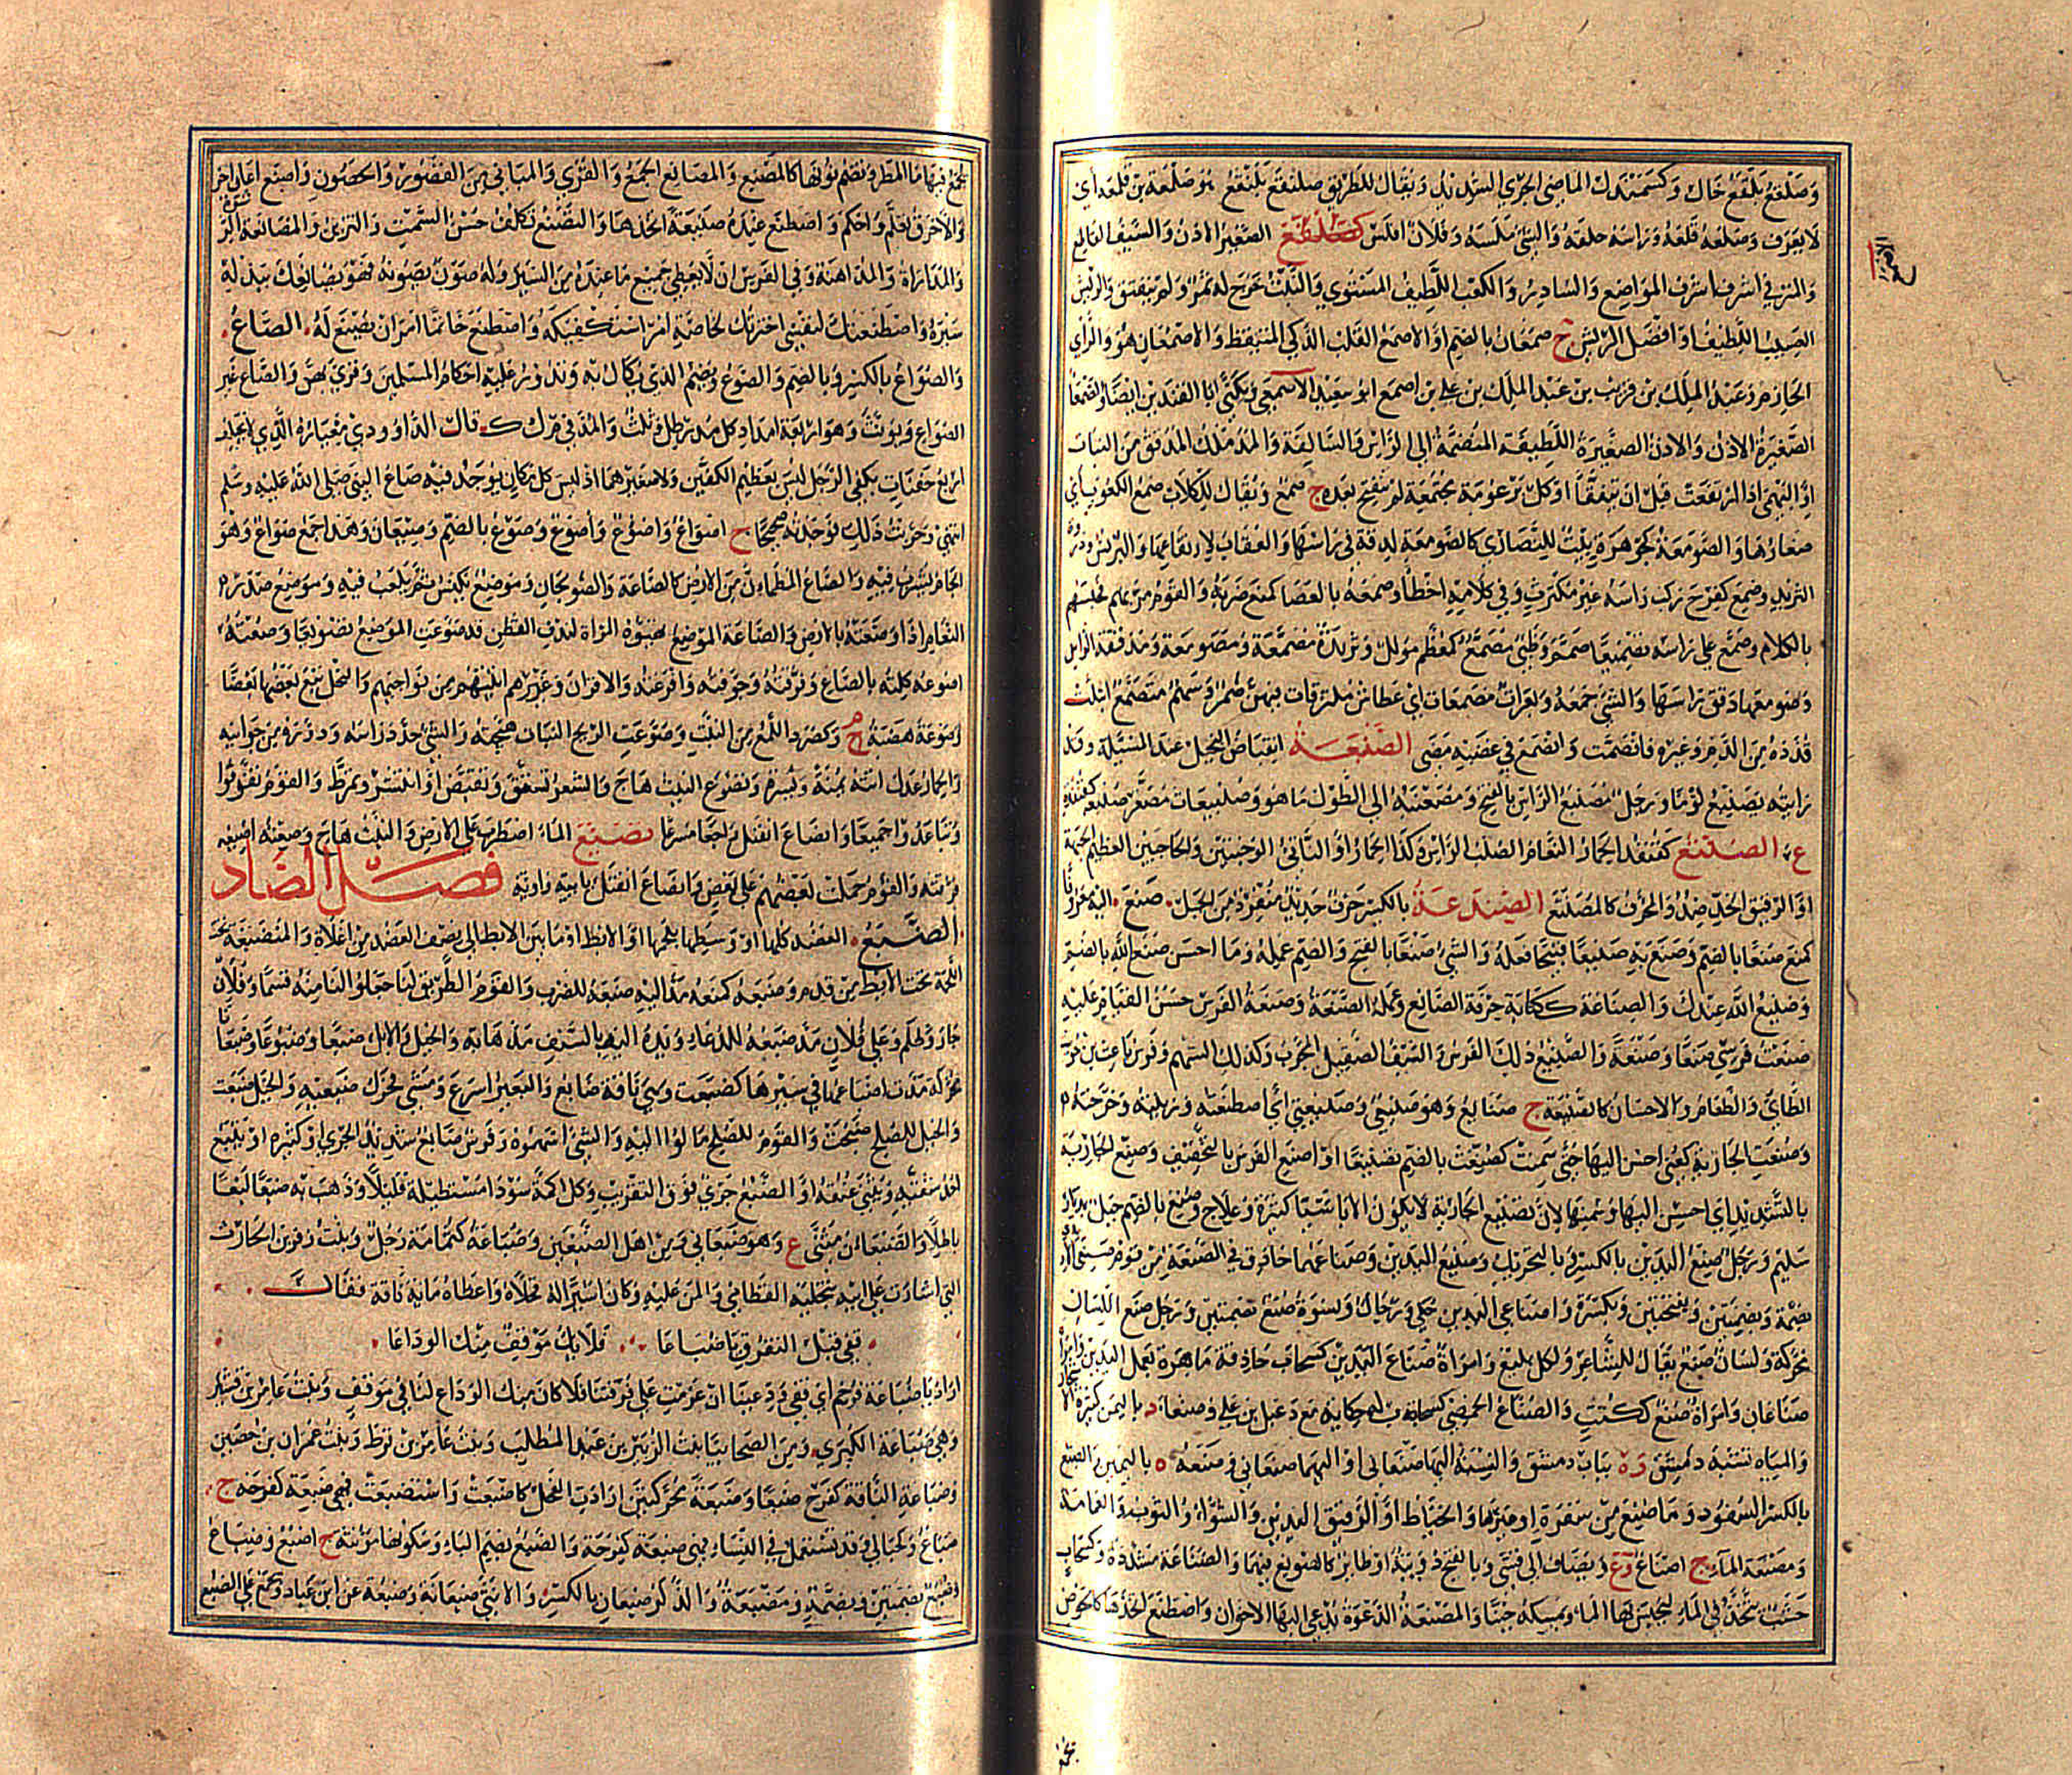 وصلقع بلقع خال وكسمندل الماضي الجري الشديد ويقال للطريق صلنقع بلنقع هو صلمعة بن قلمعة اي
لا يعرف وصلمعه قلعه وراسه حلقه والشئ ملسه وفلان افلس الصغير الاذن والسيف القاطع
والمترقي اشرف المواضع والسادر والكعب اللطيف المستوي والنبت خرج له ثمر ولم يتفتق والريش
العسيب اللطيف او افضل الريش ج صمعان بالضم او الاصمع القلب الذكي المتيقظ والاصمعان هو والراي
الحازم وعبد الملك بن قريب بن عبد الملك بن علي بن اصمع ابو سعيد الاصمعي ويكنى ابا القندين ايضا والصمعاء
الصغيرة الاذن والاذن الصغيرة اللطيفة المنضمة الى الراس والسالفة والمدملك المدقق من النبات
او البهمى اذا ارتفعت قبل ان تتفقأ او كل برعومة مجتمعة لم تنفتح بعد ج صمع ويقال للكلاب صمع الكعوب اي
صغارها والصومعة كجوهرة بيت للنصارى كالصومع لدقة في راسها والعقاب لارتفاعها والبرنس وذروة
الثريد وصمع كفرح ركب راسه غير مكترث وفي كلامه اخطا وصمعه بالعصا كمنع ضربه والقوم حبسهم
بالكلام وصمع على رايه تصميعا صمم وظبي مصمع كمعظم مؤلل وثريدة مصمعة ومصومعة مدققة الراس
وصومعها دقق راسها والشئ جمعه وبعرات مصمعات اي عطاش ملتزقات فيهن ضمر وسهم متصمع ابتلت
قذذه من الدم وغيره فانضمت وانصمع في غضبه مضى الصنبعة انقباض البخيل عند المسئلة وقد
رايته يصنبع لؤما ورجل مصنبع الراس بالفتح ومصعنبه الى الطول ما هو وصنيبعات مصغر صنبعة كقنفذة
ع الصنتع كقنفذ الحمار النعام الصلب الراس وكذا الحمار او الناتئ الوجنتين والحاجبين العظيم الجبهة
او الرقيق الخد ضد والخرف كالمصنتع الصندعة بالكسر حرف حديد منفرد من الجبل صنع اليه معروفا
كمنع صنعا بالضم وصنع به صنيعا قبيحا فعله والشئ صنعا بالفتح والضم عمله وما احسن صنع الله بالضم
وصنيع الله عندك والصناعة ككتابة حرفة الصانع وعمله الصنعة وصنعة الفرس حسن القيام عليه
صنعت فرسي صنعا وصنعة والصنيع ذلك الفرس والسيف الصقيل المجرب وكذلك السهم وفرس باعث بن
الطائي والطعام والاحسان كالصنيعة ج صنائع وهو صنيعي وصنيعتي اي اصطنعته وربيته وخرجته
وصنعت الجارية كعني احسن اليها حتى سمنت كصنعت بالضم تصنيعا او اصنع الفرس بالتخفيف وصنع الجارية
بالتشديد اي احسن اليها وسمنها لان تصنيع الجارية لا يكون الا باشيا كثيرة وعلاج وصنع بالضم جبل بديار
سليم ورجل صنع اليدين بالكسر وبالتحريك وصنيع اليدين وصناعهما حاذق في الصنعة من قوم صنعى الايدي
بضمة وبضمتين وبفتحتين وبكسرة واصناعي اليدين حكي ورجال ونسوة صنع بضمتين ورجل صنع اللسان
محركة ولسان صنع يقال للشاعر ولكل بليغ وامراة صناع اليدين كسحاب حاذقة ماهرة بعمل اليدين وامراتان
صناعان وامراة صنع ككتب له حكاية مع دعبل بن علي وصنعاء د باليمن كثيرة الاشجار
والمياه تشبه دمشق وة بباب دمشق والنسبة اليهما صنعاني او اليهما صنعاني وصنعة ة باليمن والصنع
بالكسر السفود وما صنع من سفرة او غيرها والخياط او الرقيق اليدين والشواء والثوب والعمامة
ومصنعة الماء ج اصناع وع ويضاف الى قسى وبالفتح دويبة او طائر كالصونع فيهما والصناعة مشددة وكسحاب
خشب يتخذ في الماء ليحبس بها الماء ويمسكه حينا والمصنعة الدعوة يدعى اليها الاخوان واصطنع اتخذها كالحوض
يجمع فيها ماء المطر وتضم نونها كالمصنع والمصانع الجمع والقرى والمباني من القصور والحصون واصنع اعان اخر
والاخرق تعلم واحكم واصطنع عنده صنيعة اتخذها والتصنع تكلف حسن السمت والتزين والمصانعة الرشوة
والمداراة والمداهنة وفي الفرس ان لا يعطي جميع ما عنده من السير وله صون يصونه فهو يصانعك ببذله
سيره واصطنعتك لنفسي اخترتك لخاصة امر استكفيكه واصطنع خاتما امر ان يصنع له الصاع
والصواع بالكسر وبالضم والصوع ويضم الذي يكال به وتدور عليه احكام المسلمين وقرئ بهن والصاع غير
الصواع ويؤنث وهو اربعة امداد كل مد رطل وثلث والمد في م ك ك قال الداوودي معياره الذي لا يختلف
اربع حفنات بكفي الرجل ليس بعظيم الكفين ولا صغيرهما اذ ليس كل مكان يوجد فيه صاع النبي صلى الله عليه وسلم
انتهى وجربت ذلك فوجدته صحيحا ج اصواع واصؤع واصوع وصوع بالضم وصيعان وهذا جمع صواع وهو
الجام يشرب فيه والصاع المطمئن من الارض كالصاعة والصولجان وموضع يكنس ثم يلعب فيه وموضع صدر
النعام اذا وضعته بالارض والصاعة الموضع تهيؤه المراة لندف القطن قد صوعت الموضع تصويعا وصعته
اصوعه كلته بالصاع وفرقته وخوفته وافزعته والاقران وغيرهم اتيتهم من نواحيهم والنحل تبع بعضها بعضا
وصوعة هضبة م وكصرد اللمع من النبت وصوعت الريح النبات هيجته والشئ حدد راسه ودوره من جوانبه
والحمار عدل اتنه يمنة ويسرة وتصوع النبت هاج والشعر تشقق وتقبض او انتشر وتمرط والقوم تفرقوا
وتباعدوا جميعا وانصاع انفتل راجعا مسرعا تصيع الماء اضطرب على الارض والنبت هاج وصعته اصيعه
فرقته والقوم حملت بعضهم على بعض وانصاع انفتل يائية واوية فصل الضاد
الضبع العضد كلها او وسطها بلحمها او الابط او ما بين الابط الى نصف العضد من اعلاه والمضبعة
اللحمة تحت الابط من قدم وضبعه كمنعه مد اليه ضبعه للضرب والقوم الطريق لنا جعلوا لنا منه قسما وفلان
جار وظلم وعلى فلان مد ضبعه للدعاء ويده اليه بالسيف مد هابه والخيل والابل ضبعا وضبوعا وضبعانا
محركة مدت اضباعها في سيرها كضبعت وهي ناقة ضابع والبعير اسرع ومشى فحرك ضبعيه والخيل ضبعت
والقوم للصلح مالوا اليه والشئ اسهموه وفرس ضابع شديد الجري او كثيره او يتبع
احد شقيه ويثني عنقه او الضبع جري فوق التقريب وكل اكمة سودا مستطيلة قليلا وذهب به ضبعا لبعا
باطلا والضبعان مثنى ع وهو ضبعاني ومن اهل الضبعين وضباعة كثمامة رجل وبنت زفر بن الحارث
التي اشارت على ابيه بتخلية القطامي والمن عليه وكان اسيرا له فخلاه واعطاه مائة ناقة فقال
قفي قبل التفرق يا ضباعا فلا يك موقف منك الوداعا
اراد يا ضباعة فرخم اي قفي ودعينا ان عزمت على فرقتنا فلا كان منك الوداع لنا في موقف وبنت عامر بن قشير
وهي ضباعة الكبرى ومن الصحابيات بنت الزبير بن عبد المطلب وبنت عامر بن قرط وبنت عمران بن حصين
وضبعت الناقة كفرح ضبعا وضبعة محركتين ارادت الفحل كاضبعت واستضبعت فهي ضبعة كفرحة ج
ضباع وحبالى وقد تستعمل في النساء فهي ضبعة كفرحة والضبع بضم الباء وسكونها مؤنثة ج اضبع وضباع
وضبع بضمتين وبضمة ومضبعة والذكر ضبعان بالكسر والانثى ضبعانة وضبعة عن ابن عباد وتجمع على الضبع